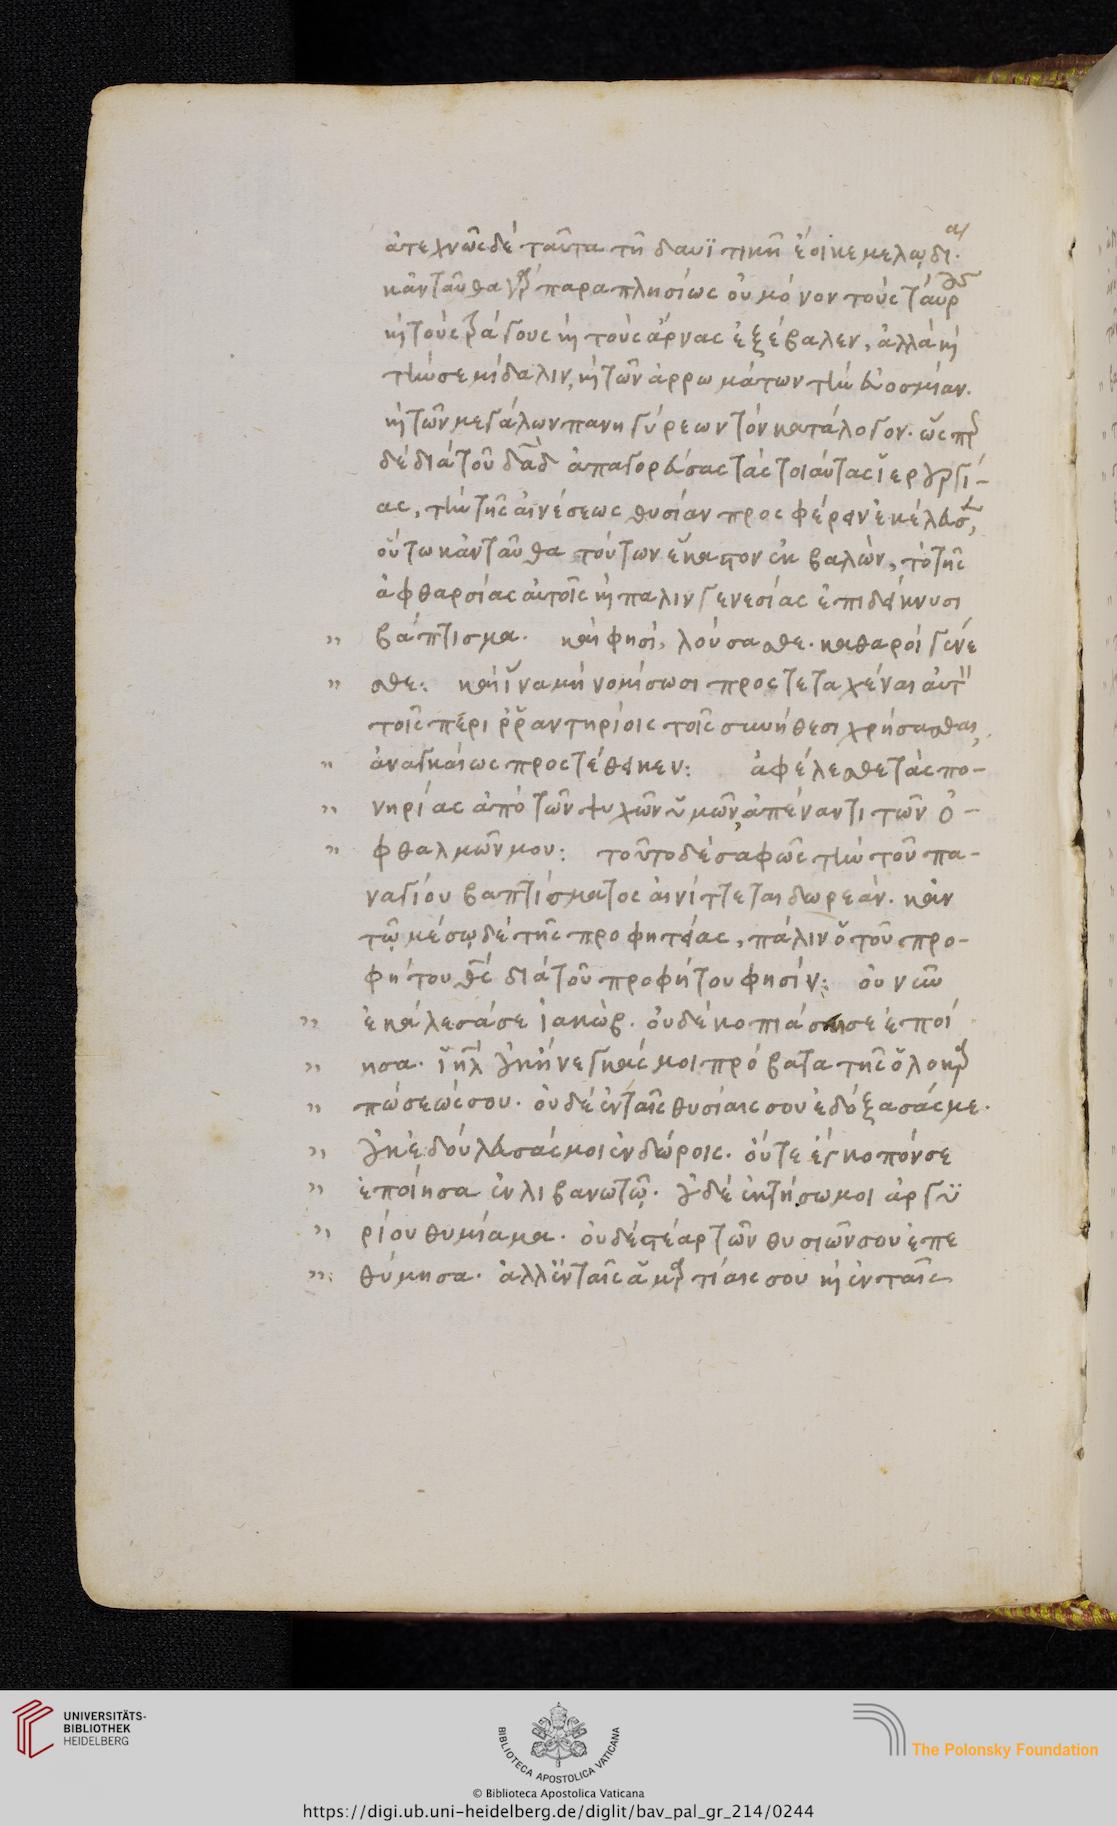 ἀτεχνῶς δὲ ταῦτα τῆ δαυϊτικῆ ἔοικε μελῳδίᾳ.
κἀνταῦθα γὰρ παραπλησίως οὐ μόνον τοὺς ταύρους
κὶ τοὺς τράγους κὶ τοὺς ἄρνας ἐξέβαλεν, ἀλλὰ κὶ
τὴν σεμίδαλιν, κὶ τῶν ἀρρωμάτων τὴν εὐοσμίαν.
κὶ τῶν μεγάλων πανηγύρεων τὸν κατάλογον. ὥσπερ
δὲ διὰ τοῦ δαδ ἀπαγορεύσας τὰς τοιάυτας ἱερουργί-
ας, τὴν τῆς αἰνέσεως θυσίαν προσφέρειν ἐκέλευσεν,
οὕτω κἀνταῦθα τούτων ἕκαστον ἐκβαλὼν, τὸ τῆς
ἀφθαρσίας αὐτοῖς κὶ παλινγενεσίας ἐπιδείκνυσι
" βάπτισμα. καὶ φησὶ, λούσασθε. καθαροὶ γένε
" σθε: καὶ ἵνα μὴ νομίσωσι προστεταχέναι αὐτ
τοῖς περιρραντηρίοις τοῖς συνήθεσι χρήσασθαι,
" ἀναγκαίως προστέθεικεν: ἀφέλεσθε τὰς πο-
" νηρίας ἀπὸ τῶν ψυχῶν ὑμῶν, ἀπέναντι τῶν ὀ-
" φθαλμῶν μου: τοῦτο δὲ σαφῶς τὴν τοῦ πα-
ναγίου βαπτίσματος αἰνίττεται δωρεάν. κἀν
τῷ μέσῳ δὲ τῆς προφητείας, πάλιν ὁ τοῦ προ-
φήτου θς διὰ τοῦ προφήτου φησίν: οὐ νῦν
" ἐκάλεσά σε ἰακώβ. οὐδὲ κοπιάσαι σε ἐποί
" ησα. ἰηλ οὐκ ἤνεγκάς μοι πρόβατα τῆς ὁλοκαρ
" πώσεώς σου. οὐδὲ ἐν ταῖς θυσίαις σου ἐδόξασάς με.
" οὐκ ἐδούλευσάς μοι ἐν δώροις. οὔτε ἔγκοπόν σε
" ἐποίησα ἐν λιβανωτῷ. οὐδὲ ἐκτήσω μοι ἀργυ
" ρίου θυμίαμα. οὐδὲ στέαρ τῶν θυσιῶν σου ἐπε
" θύμησα. ἀλλ' ἐν ταῖς ἁμαρτίαις σου κὶ ἐν ταῖς
UNIVERSITÄTS-
BIBLIOTHEK
HEIDELBERG
BIBLIOTECA APOSTOLICA VATICANA
The Polonsky Foundation
© Biblioteca Apostolica Vaticana
https://digi.ub.uni-heidelberg.de/diglit/bav_pal_gr_214/0244